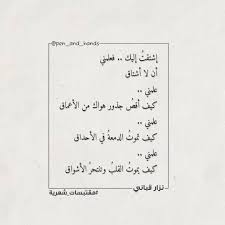 @pen_and_hands
إشتقتُ إليك .. فعلمني
أن لا أشتاق
علمني ..
كيف أقصُ جذور هواك من الأعماق
علمني ..
كيف تموتُ الدمعةُ في الأحداق
علمني ..
كيف يموتُ القلبُ وتنتحرُ الأشواق
نزار قباني
#مقتبسات_شعرية